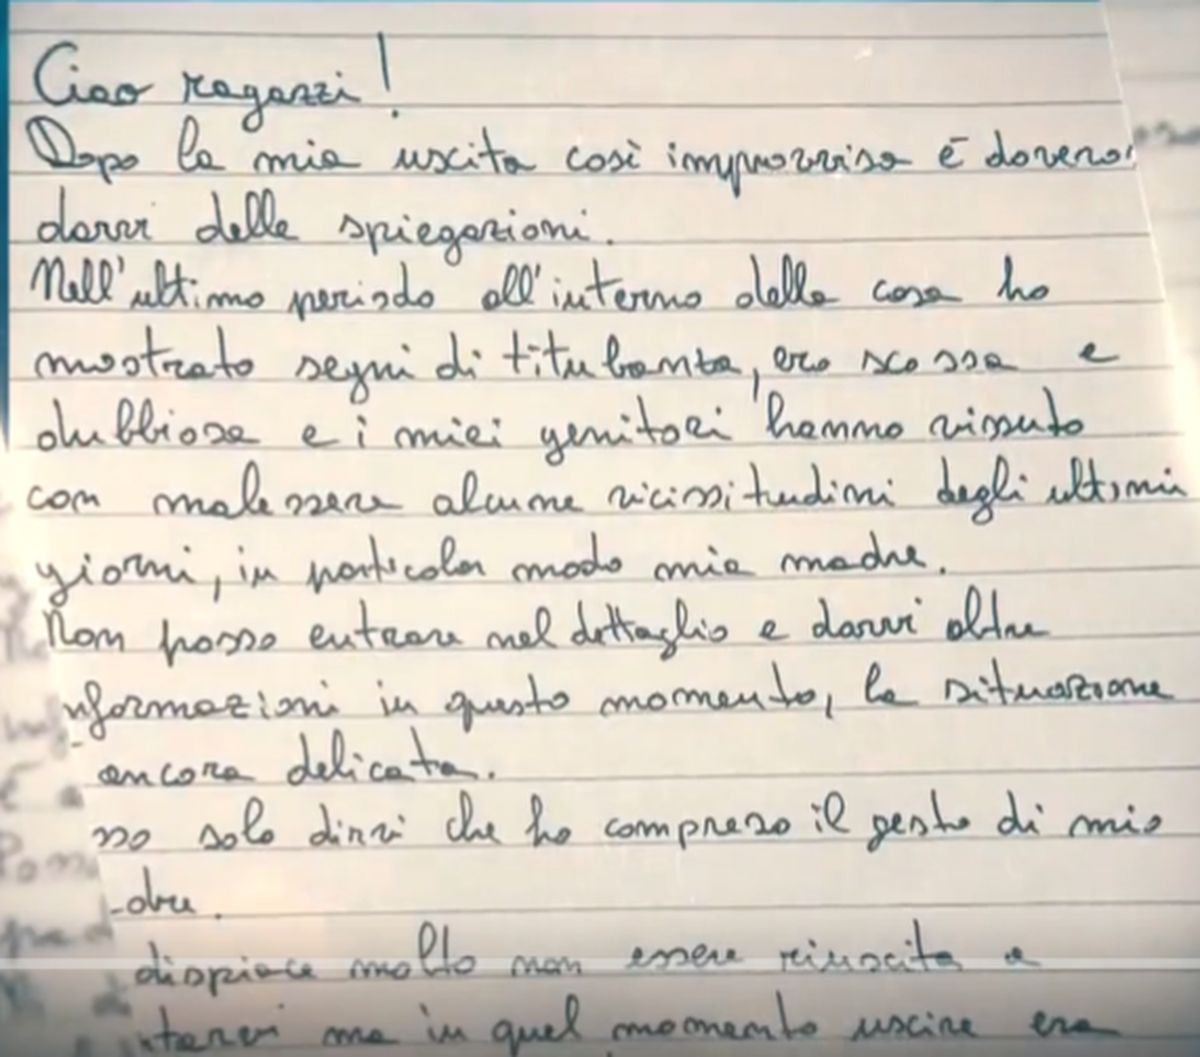 Ciao ragazzi!
Dopo la mia uscita così improvvisa è doveroso
darvi delle spiegazioni.
Nell'ultimo periodo all'interno della casa ho
mostrato segni di titubanza, ero scossa e
dubbiosa e i miei genitori hanno vissuto
con malessere alcune vicissitudini degli ultimi
giorni, in particolar modo mia madre.
Non posso entrare nel dettaglio e darvi oltre
nformazioni in questo momento, la situazione
ancora delicata.
sso solo dirvi che ho compreso il gesto di mio
dre.
dispiace molto non essere riuscita a
ma in quel momento uscire era